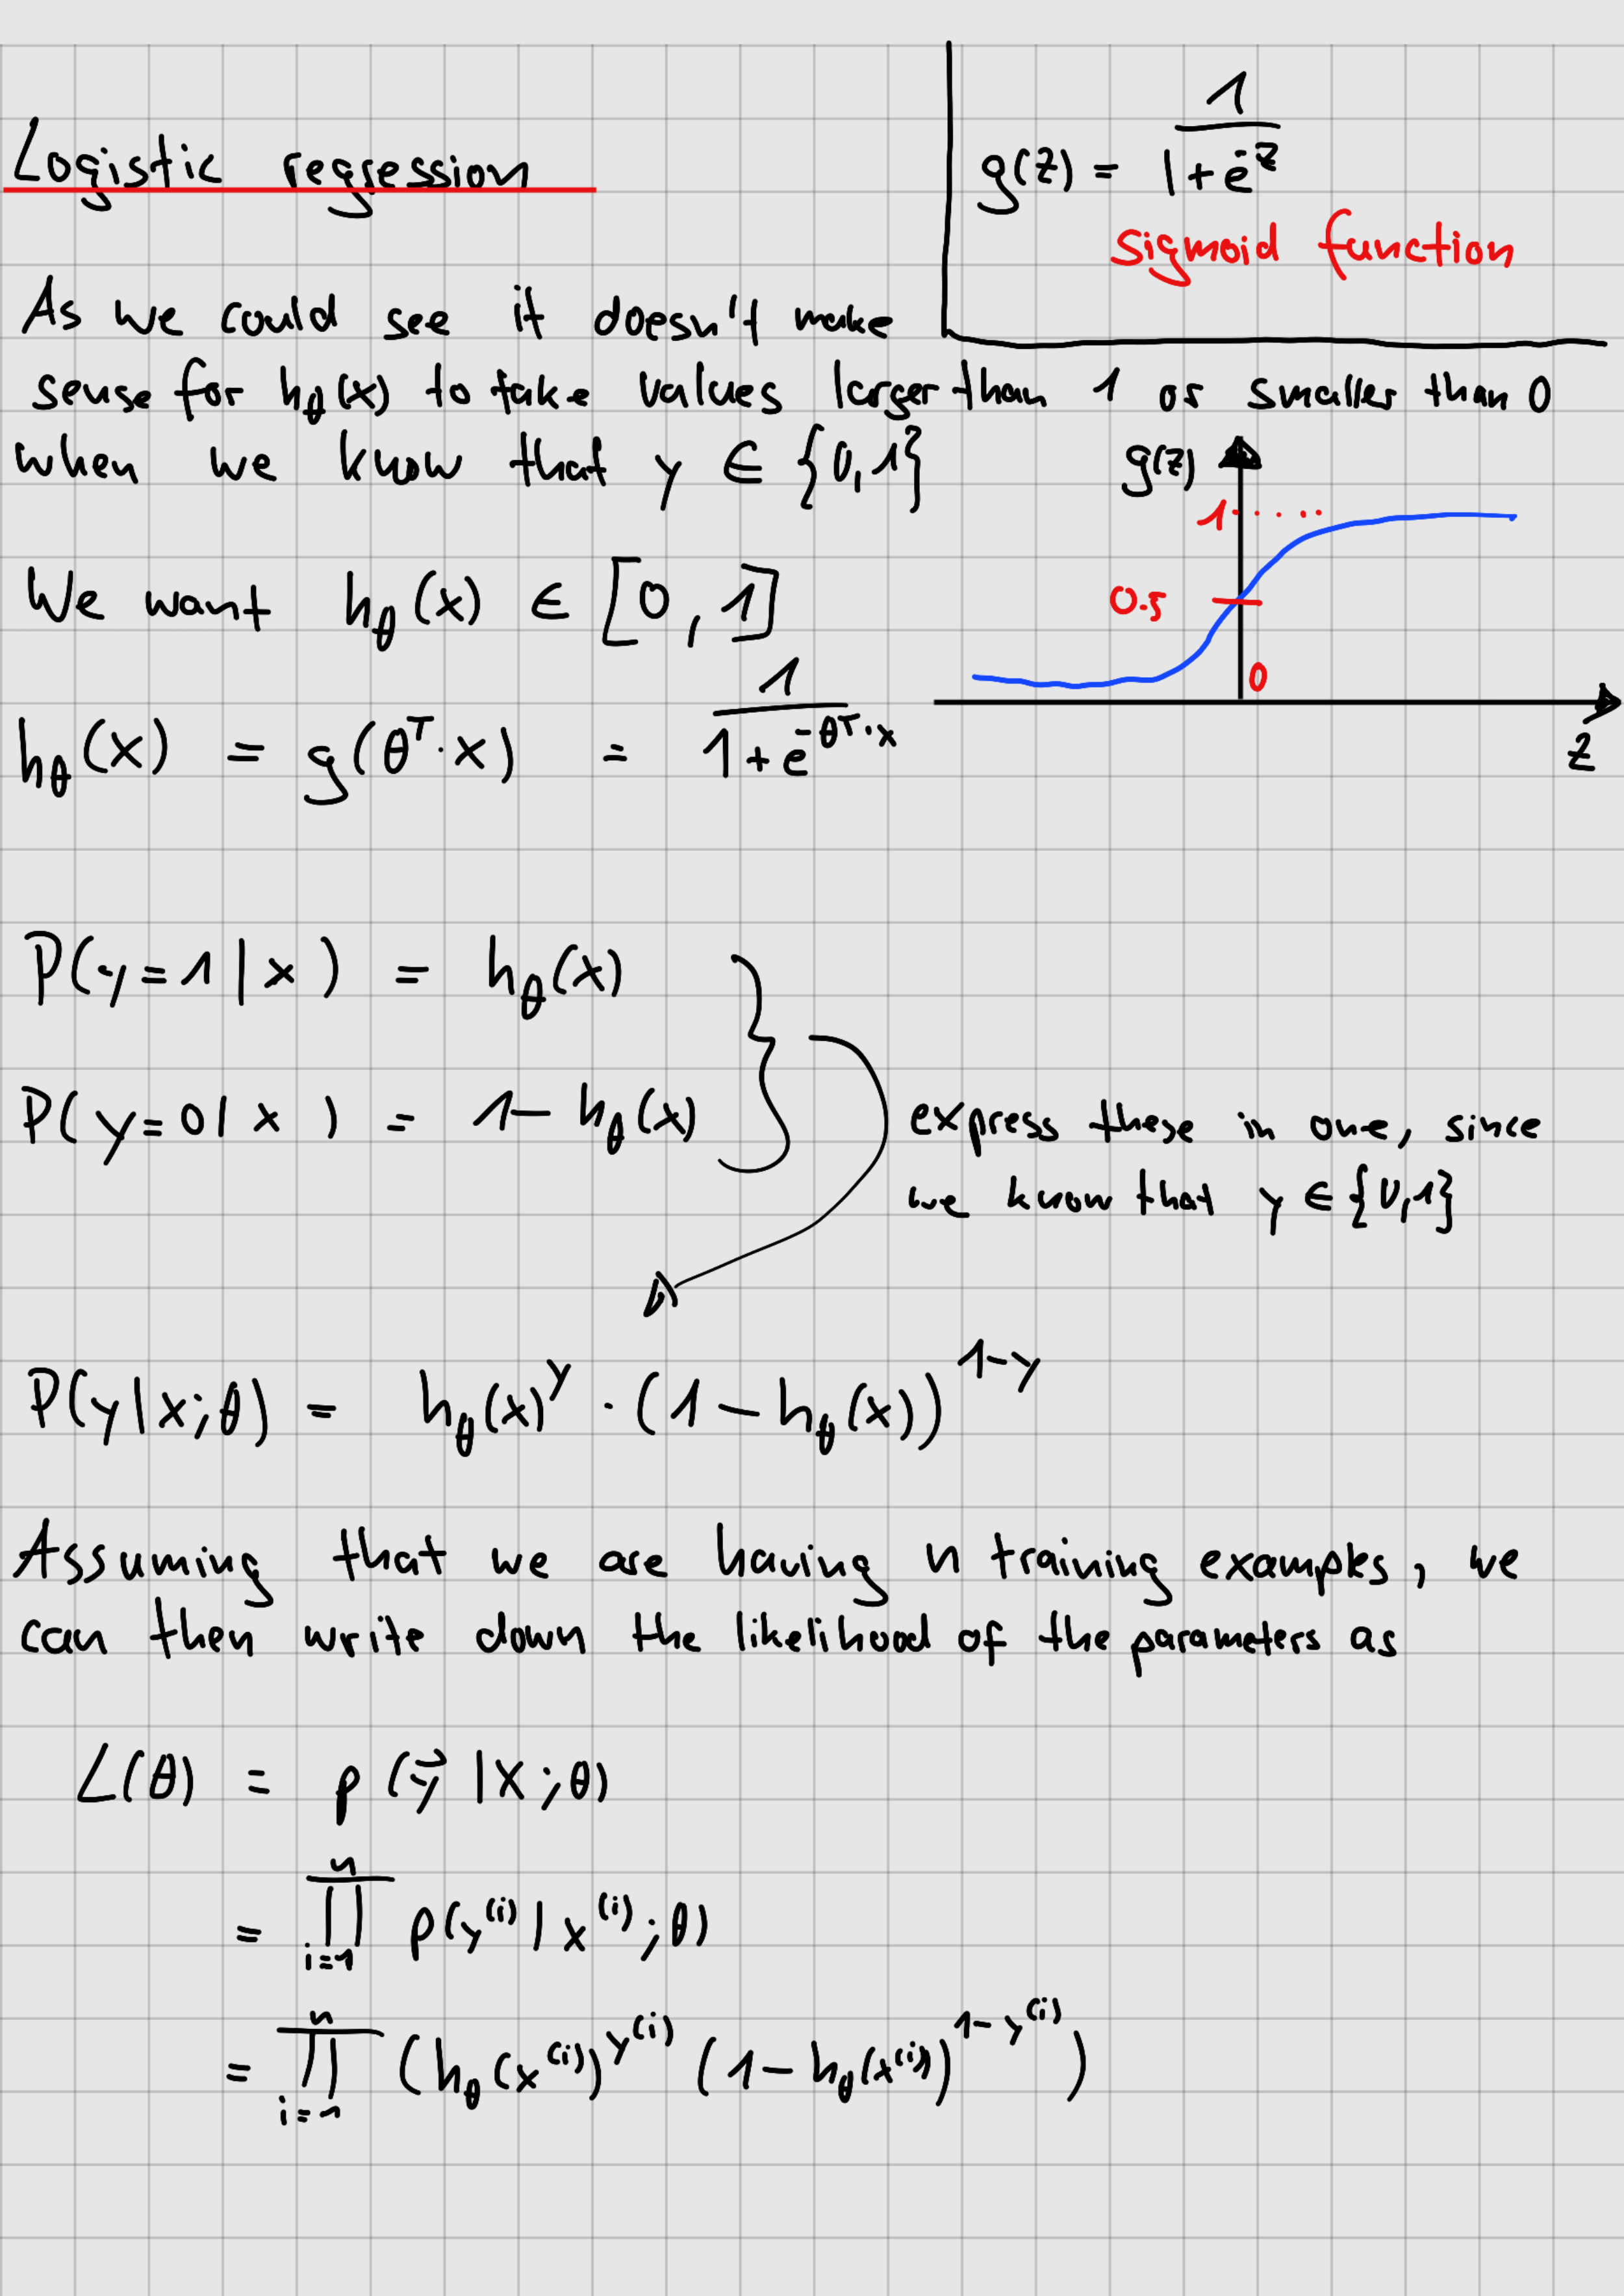 Logistic regression
g(z) = 1 / (1 + e^-z)
sigmoid function
As we could see it doesn't make
sense for hθ(x) to take values larger than 1 or smaller than 0
when we know that y ∈ {0,1}
g(z)
1
0.5
0
z
We want hθ(x) ∈ [0, 1]
hθ(x) = g(θ^T · x) = 1 / (1 + e^-θ^T·x)
P(y=1 | x) = hθ(x)
P(y=0 | x) = 1 - hθ(x)
express these in one, since
we know that y ∈ {0,1}
P(y|x;θ) = hθ(x)^y · (1 - hθ(x))^1-y
Assuming that we are having n training examples, we
can then write down the likelihood of the parameters as
L(θ) = p(y⃗ | X; θ)
= ∏_{i=1}^n p(y^(i) | x^(i); θ)
= ∏_{i=1}^n (hθ(x^(i))^y^(i) (1 - hθ(x^(i)))^1-y^(i))